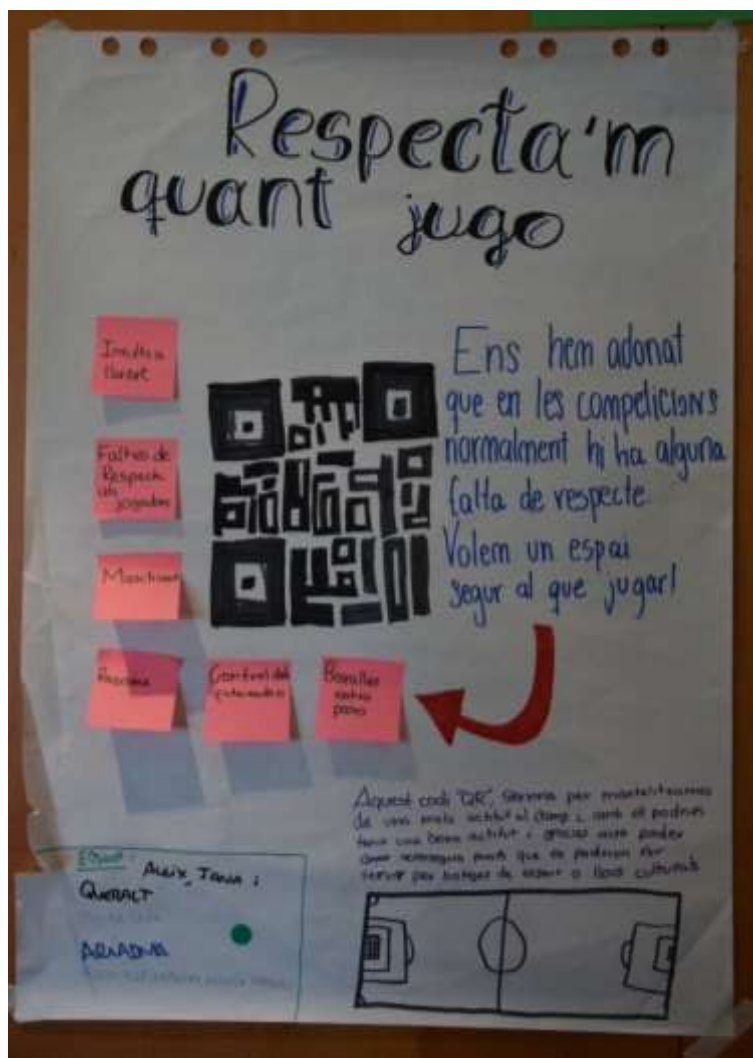 Respecta'm
quant jugo
Insults a
Faltes de
Respecte
als
jugadors
Masclisme
Racisme
Control del
entrenador
Baralles
entre
pares
Ens hem adonat
que en les competicions
normalment hi ha alguna
falta de respecte.
Volem un espai
segur al que jugar!
Aquest codi "QR", serviria per
de una mala actitut al camp i amb el podries
tenir una bona actitut i gracies aixo poder
que es podrien fer
servir per o llocs culturals
Equip:
Aleix, Jana i
QUERALT
ARIADNA